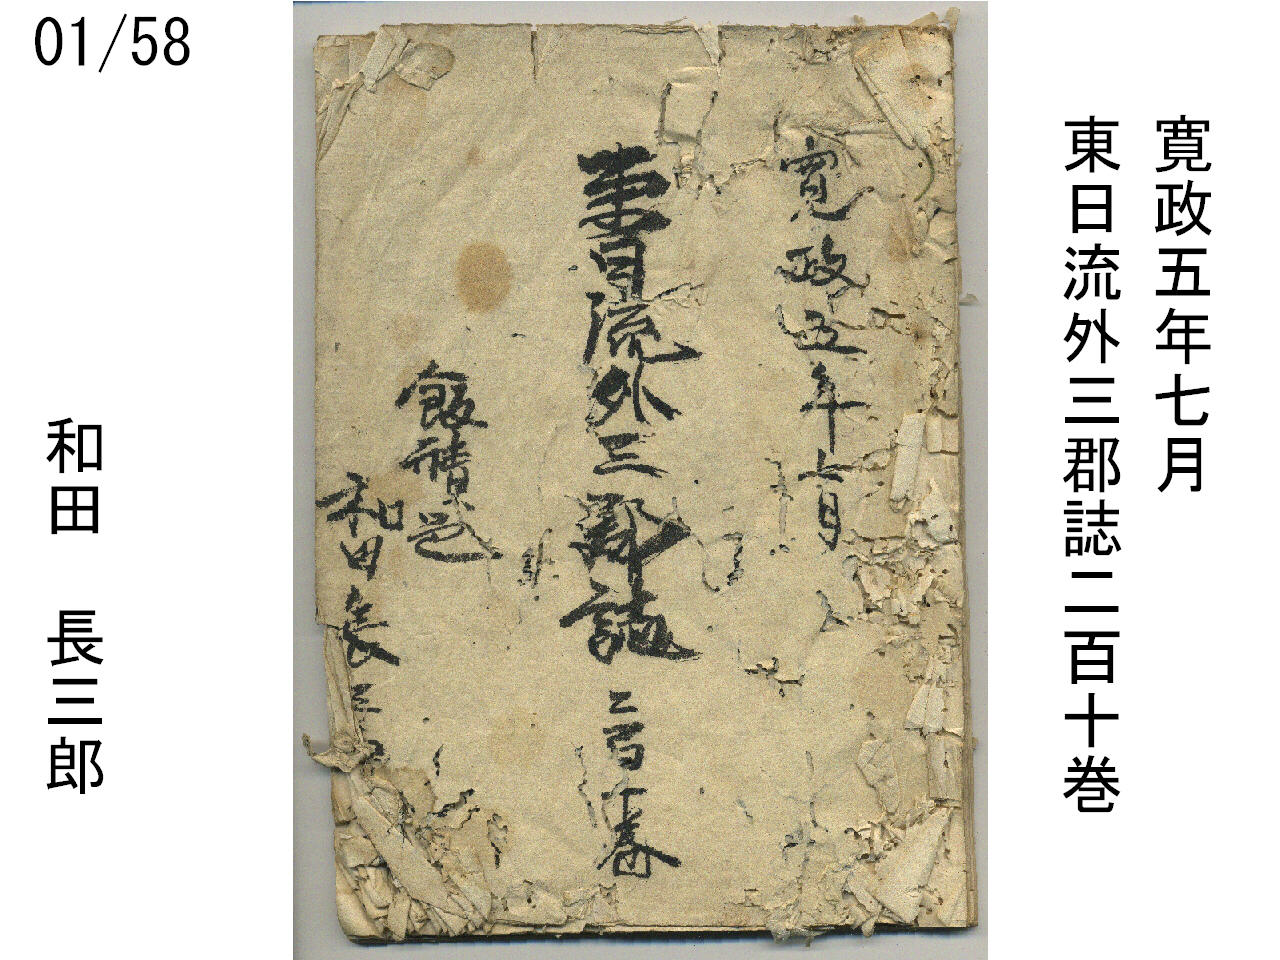 01/58
寛政五年七月
東日流外三郡誌二百十巻
和田 長三郎
寛政五年七月
東日流外三郡誌 二百十巻
飯積邑
和田長三郎